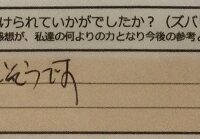 けられていかがでしたか？（ズバ
感想が、私達の何よりの力となり今後の参考
そうです